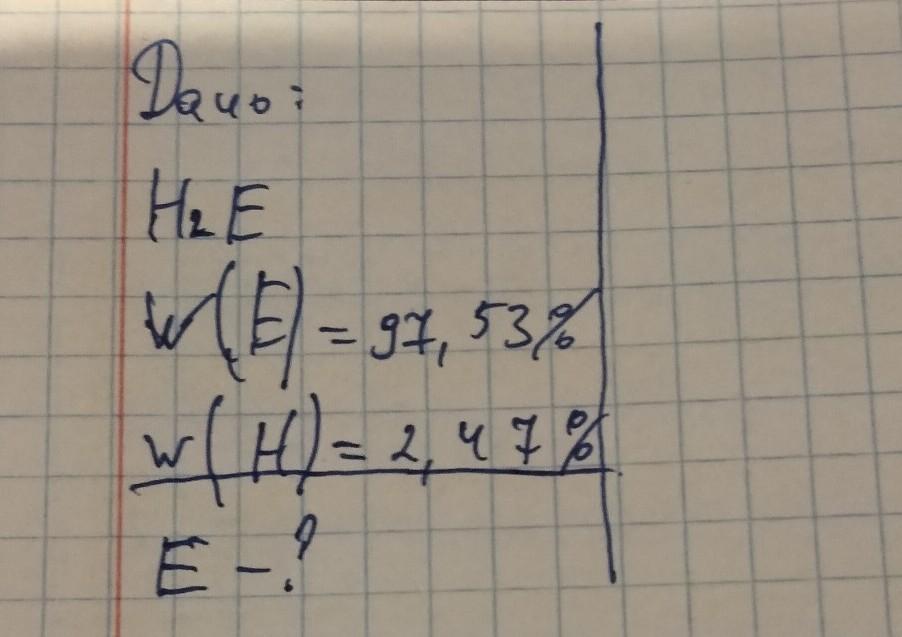 Дано:
H₂E
w(E) = 97,53%
w(H) = 2,47%
E - ?